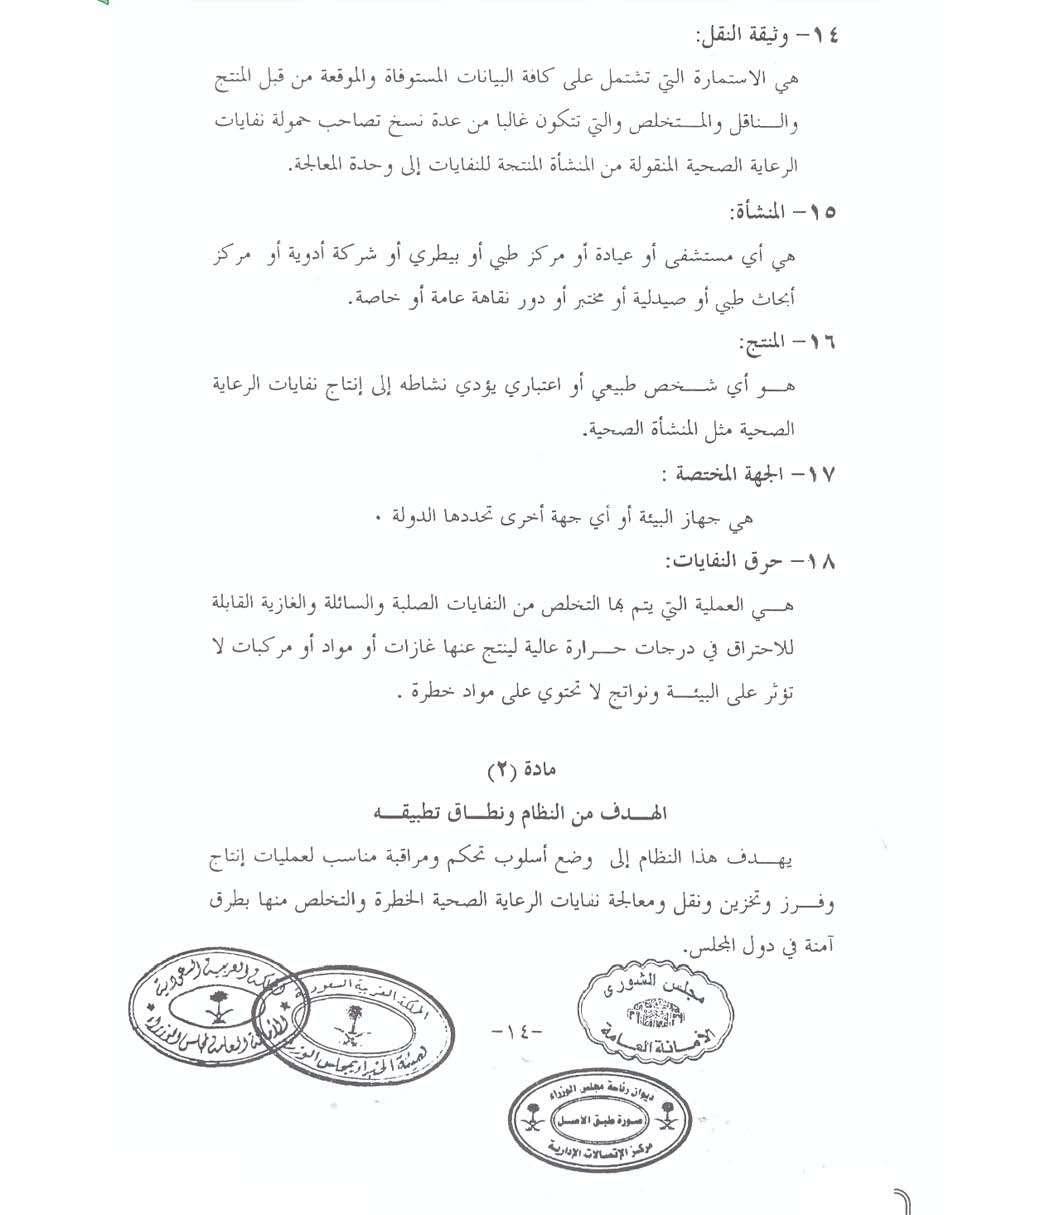 ١٤- وثيقة النقل:
هي الاستمارة التي تشتمل على كافة البيانات المستوفاة والموقعة من قبل المنتج
والـــناقل والمـتخلص والتي تتكون غالبا من عدة نسخ تصاحب حمولة نفايات
الرعاية الصحية المنقولة من المنشأة المنتجة للنفايات إلى وحدة المعالجة.
١٥- المنشأة:
هي أي مستشفى أو عيادة أو مركز طبي أو بيطري أو شركة أدوية أو مركز
أبحاث طبي أو صيدلية أو مختبر أو دور نقاهة عامة أو خاصة.
١٦- المنتج:
هـــو أي شـــخص طبيعي أو اعتباري يؤدي نشاطه إلى إنتاج نفايات الرعاية
الصحية مثل المنشأة الصحية.
١٧- الجهة المختصة :
هي جهاز البيئة أو أي جهة أخرى تحددها الدولة .
١٨- حرق النفايات:
هـــي العملية التي يتم بها التخلص من النفايات الصلبة والسائلة والغازية القابلة
للاحتراق في درجات حـــرارة عالية لينتج عنها غازات أو مواد أو مركبات لا
تؤثر على البيئـــة ونواتج لا تحتوي على مواد خطرة .
مادة (٢)
الهـــدف من النظام ونطـــاق تطبيقـــه
يهـــدف هذا النظام إلى وضع أسلوب تحكم ومراقبة مناسب لعمليات إنتاج
وفـــرز وتخزين ونقل ومعالجة نفايات الرعاية الصحية الخطرة والتخلص منها بطرق
آمنة في دول المجلس.
المملكة العربية السعودية
الأمانة العامة لمجلس الوزراء
المملكة العربية السعودية
هيئة الخبراء بمجلس الوزراء
-١٤-
مجلس الشورى
الأمانة العامة
ديوان رئاسة مجلس الوزراء
صورة طبق الأصل
مركز الإتصالات الإدارية